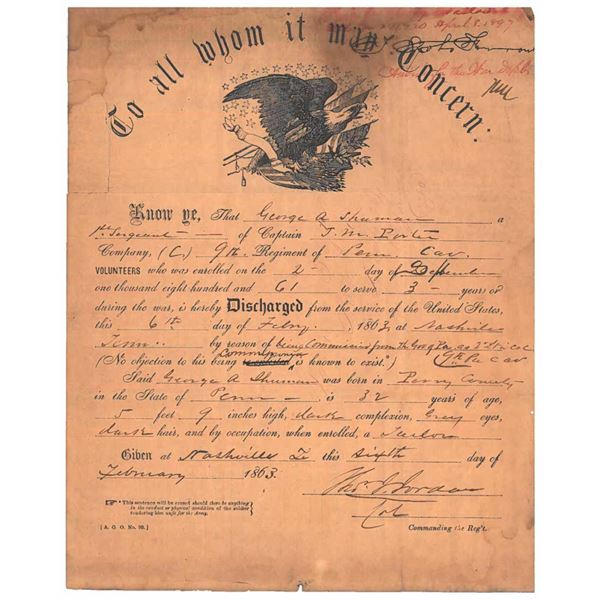 To all whom it may Concern:
April 8, 1897
Know ye, That George A Shuman a
1st Sergeant of Captain T. M. Porter
Company, (C,) 9th Regiment of Penn Cav.
VOLUNTEERS who was enrolled on the 2 day of September
one thousand eight hundred and 61 to serve 3 years or
during the war, is hereby Discharged from the service of the United States,
this 6th day of Febry, 1863, at Nashville
Tenn by reason of being Commission from the Gov of Pa as 2d
9th Pa Cav
(No objection to his being is known to exist.*)
Said George A Shuman was born in Perry County
in the State of Penn is 32 years of age,
5 feet, 9 inches high, dark complexion, Grey eyes,
dark hair, and by occupation, when enrolled, a Tailor
Given at Nashville Te this Sixth day of
February 1863.
Thos J. Jordan
Col
Commanding the Reg't.
☞ *This sentence will be erased should there be anything
in the conduct or physical condition of the soldier
rendering him unfit for the Army.
[A. G. O. No. 99.]